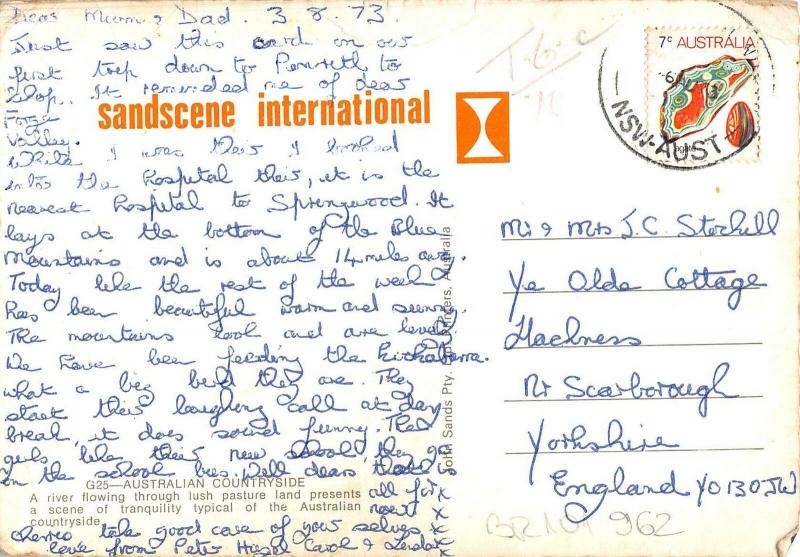 Dear Mum & Dad. 3.8.73
Just saw this card on our
first trip down to Penrith to
shop. It reminded me of dear
Forge
Valley.
While I was their I looked
into the hospital their, it is the
nearest hospital to Springwood. It
lays at the bottom of the Blue
Mountains and is about 14 miles away.
Today like the rest of the week
has been beautiful warm and sunny.
The mountains look and are lovely
We have been feeding the Kookaburra.
what a big bird they are. They
start their laughing call at day
break, it does sound funny. The
girls like their new school, they go
on the school bus. Well dears that is
all for x
now x
cheerio take good care of your selves x
love from Peter Hazel Carol & Linda x
sandscene international
G25—AUSTRALIAN COUNTRYSIDE
A river flowing through lush pasture land presents
a scene of tranquility typical of the Australian
countryside.
John Sands Pty. Printers, Australia
7c AUSTRALIA
agate
NSW-AUST
Mr & Mrs J.C. Stockill
Ye Olde Cottage
Hackness
Nr Scarborough
Yorkshire
England YO13 0JW
962